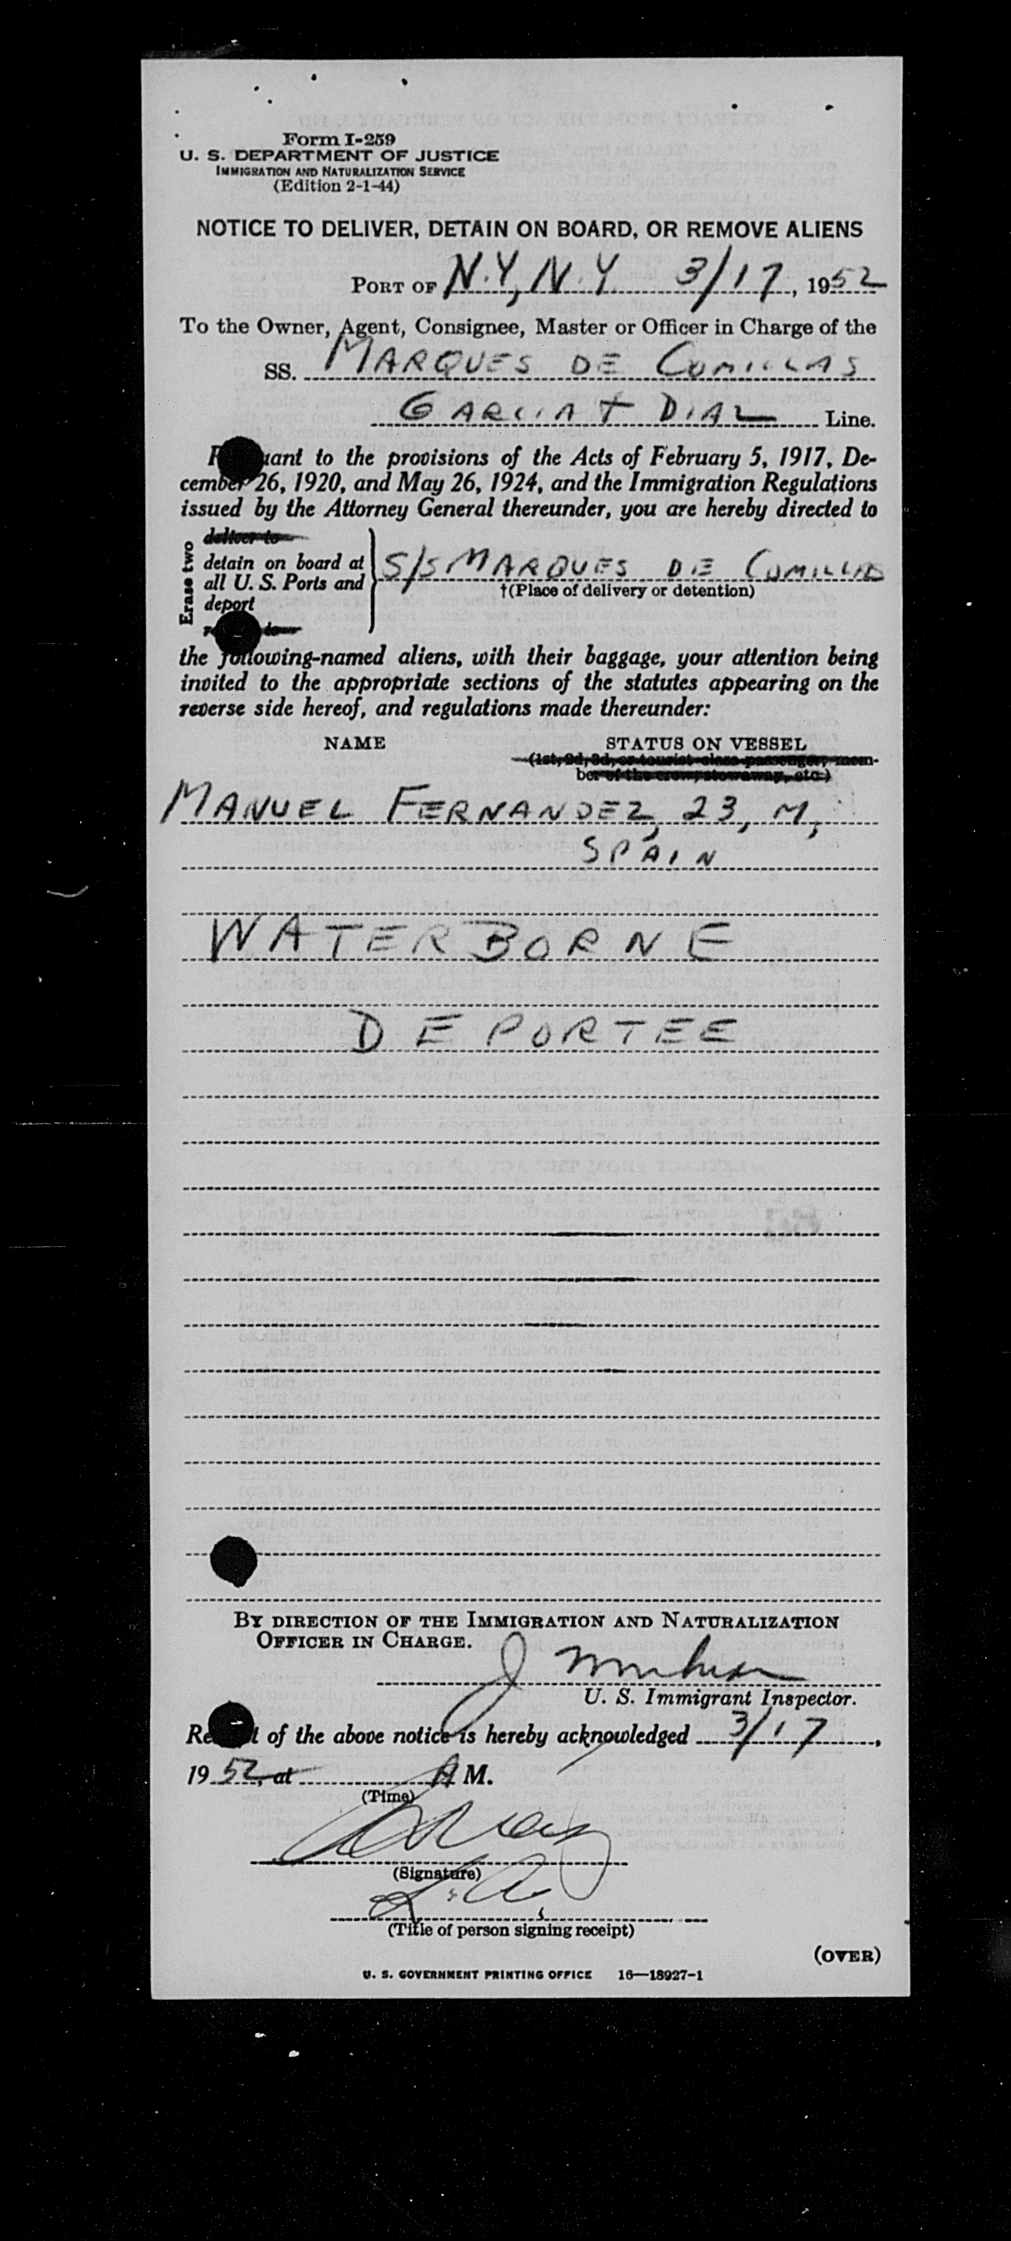 Form I-259
U. S. DEPARTMENT OF JUSTICE
IMMIGRATION AND NATURALIZATION SERVICE
(Edition 2-1-44)
NOTICE TO DELIVER, DETAIN ON BOARD, OR REMOVE ALIENS
PORT OF N.Y., N.Y. 3/17, 1952
To the Owner, Agent, Consignee, Master or Officer in Charge of the
SS. MARQUES DE COMILLAS
GARCIA + DIAZ Line.
Pursuant to the provisions of the Acts of February 5, 1917, De-
cember 26, 1920, and May 26, 1924, and the Immigration Regulations
issued by the Attorney General thereunder, you are hereby directed to
Erase two
deliver to
detain on board at
all U. S. Ports and
deport
S/S MARQUES DE COMILLAS
†(Place of delivery or detention)
the following-named aliens, with their baggage, your attention being
invited to the appropriate sections of the statutes appearing on the
reverse side hereof, and regulations made thereunder:
NAME STATUS ON VESSEL
(1st, 2d, 3d, or tourist class passenger, mem-
ber of the crew, stowaway, etc.)
MANUEL FERNANDEZ, 23, M,
SPAIN
WATERBORNE
DEPORTEE
BY DIRECTION OF THE IMMIGRATION AND NATURALIZATION
OFFICER IN CHARGE.
U. S. Immigrant Inspector.
Receipt of the above notice is hereby acknowledged 3/17,
1952, at A M.
(Time)
(Signature)
(Title of person signing receipt)
(OVER)
U. S. GOVERNMENT PRINTING OFFICE 16—18927-1